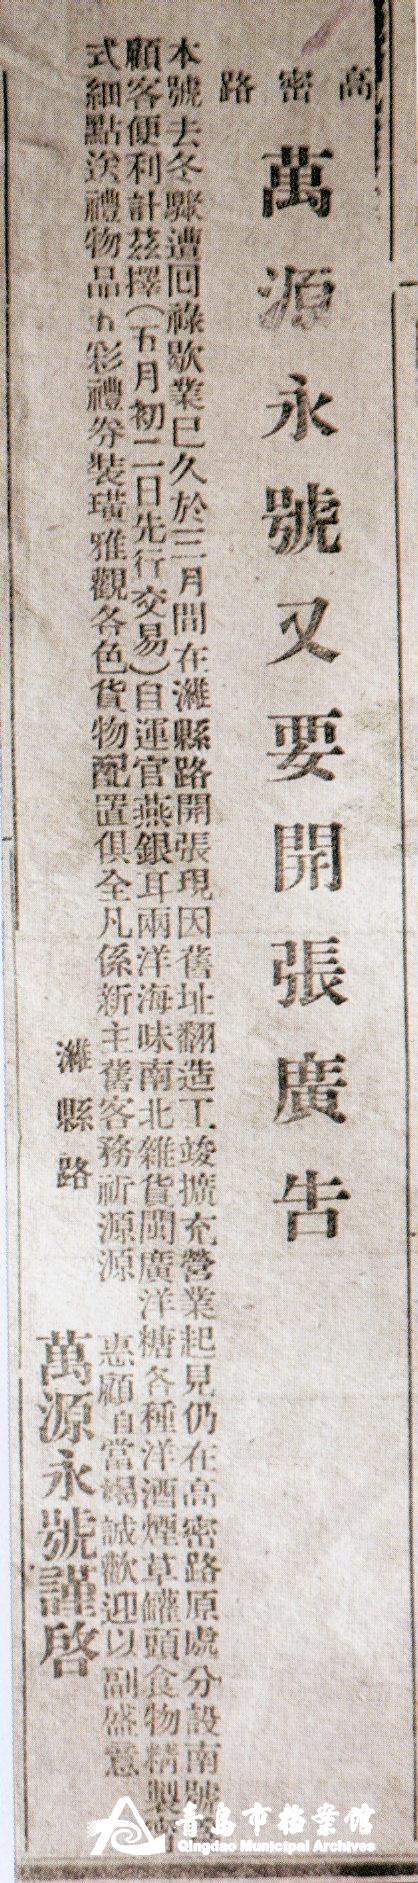 高密路
萬源永號又要開張廣告
本號去冬驟遭回祿歇業已久於三月間在濰縣路開張現因舊址翻造工竣擴充營業起見仍在高密路原處分設南號
顧客便利計茲擇（五月初二日先行交易）自運官燕銀耳兩洋海味南北雜貨閩廣洋糖各種洋酒煙草罐頭食物精製
式細點送禮物品五彩禮券裝璜雅觀各色貨物配置俱全凡係新主舊客務祈源源 惠顧自當竭誠歡迎以副盛意
濰縣路 萬源永號謹啓
青島市档案馆
Qingdao Municipal Archives